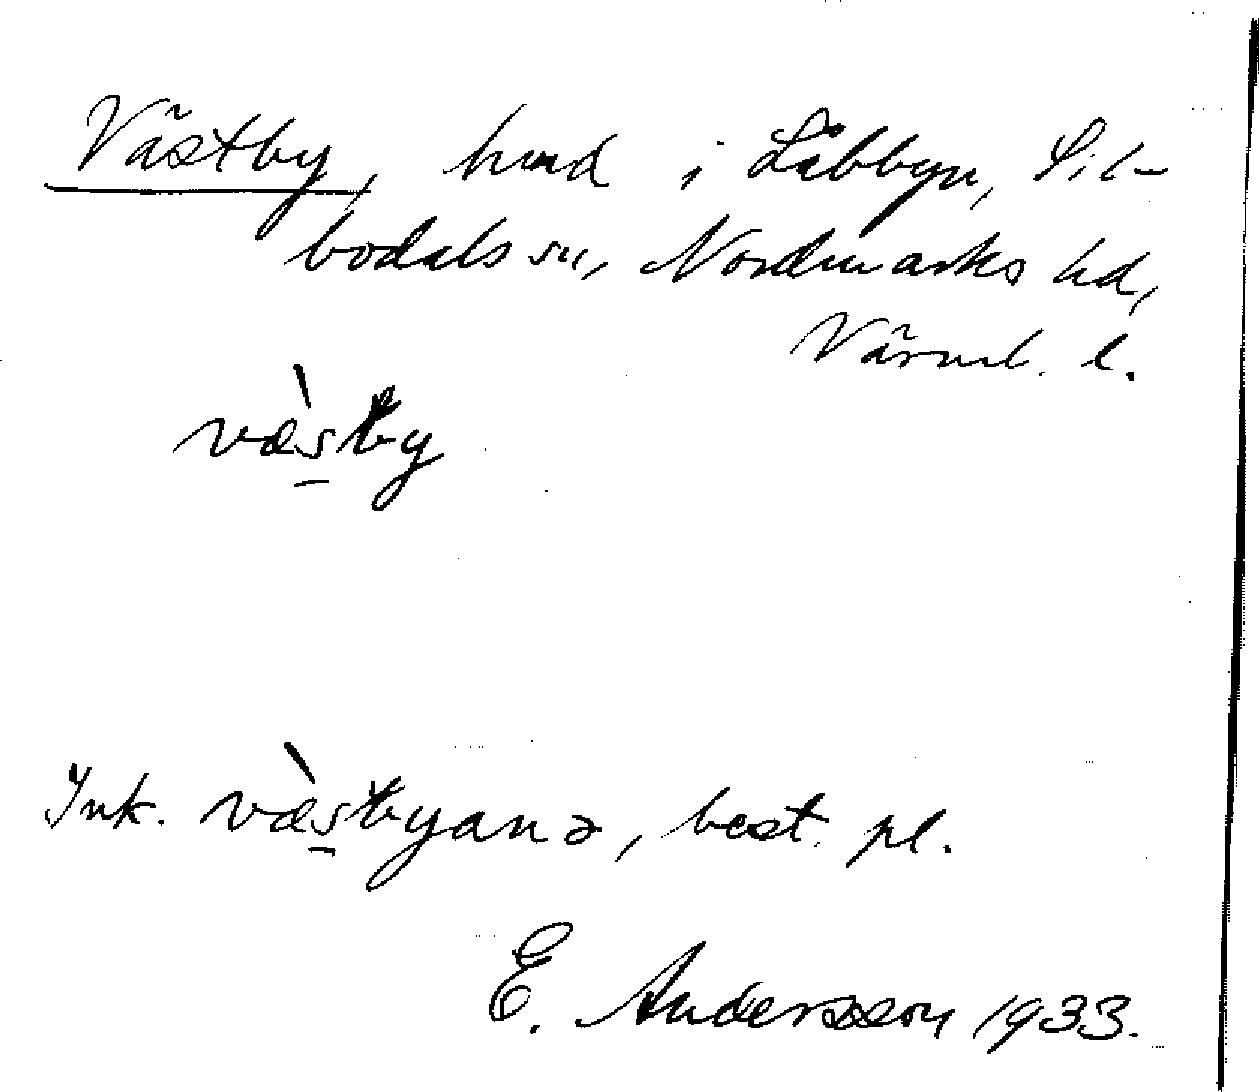 Västby, hmd i Låbbyn, Sil-
bodals sn, Nordmarks hd,
Värml. l.
væ̀s̠by
Ink. væ̀s̠byanə, best. pl.
E. Andersson 1933.